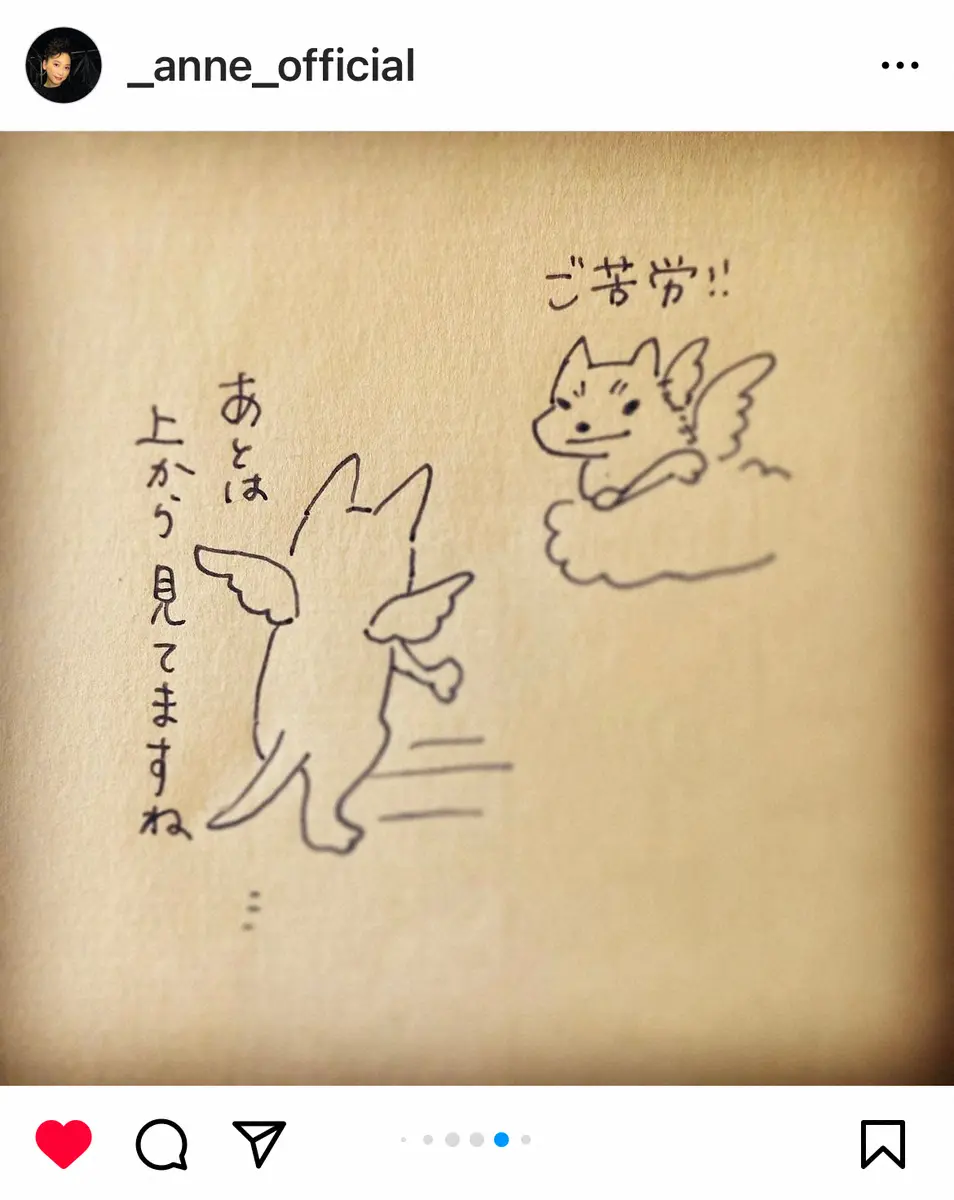 _anne_official
ご苦労!!
あとは
上から見てますね